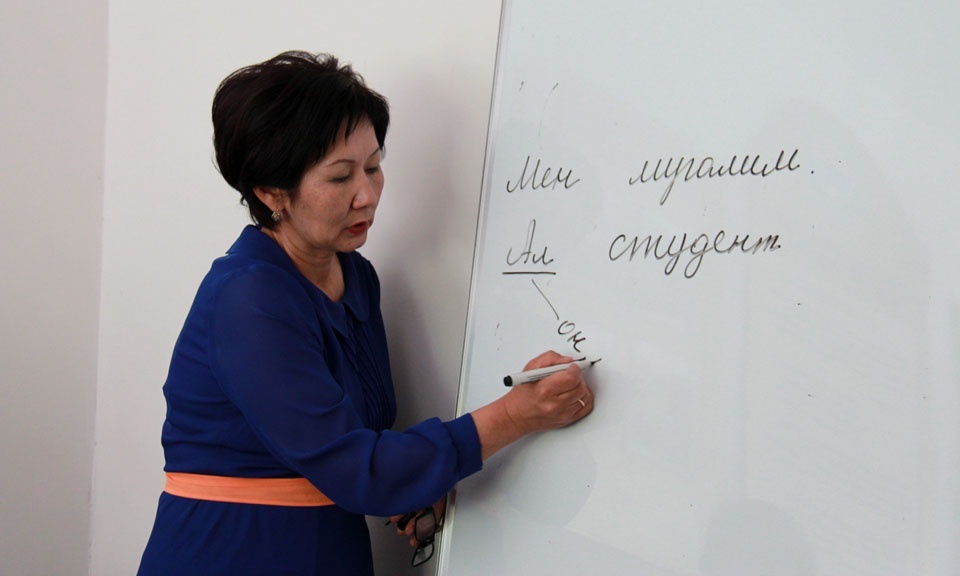 Мен мугалим.
Ал студент
он